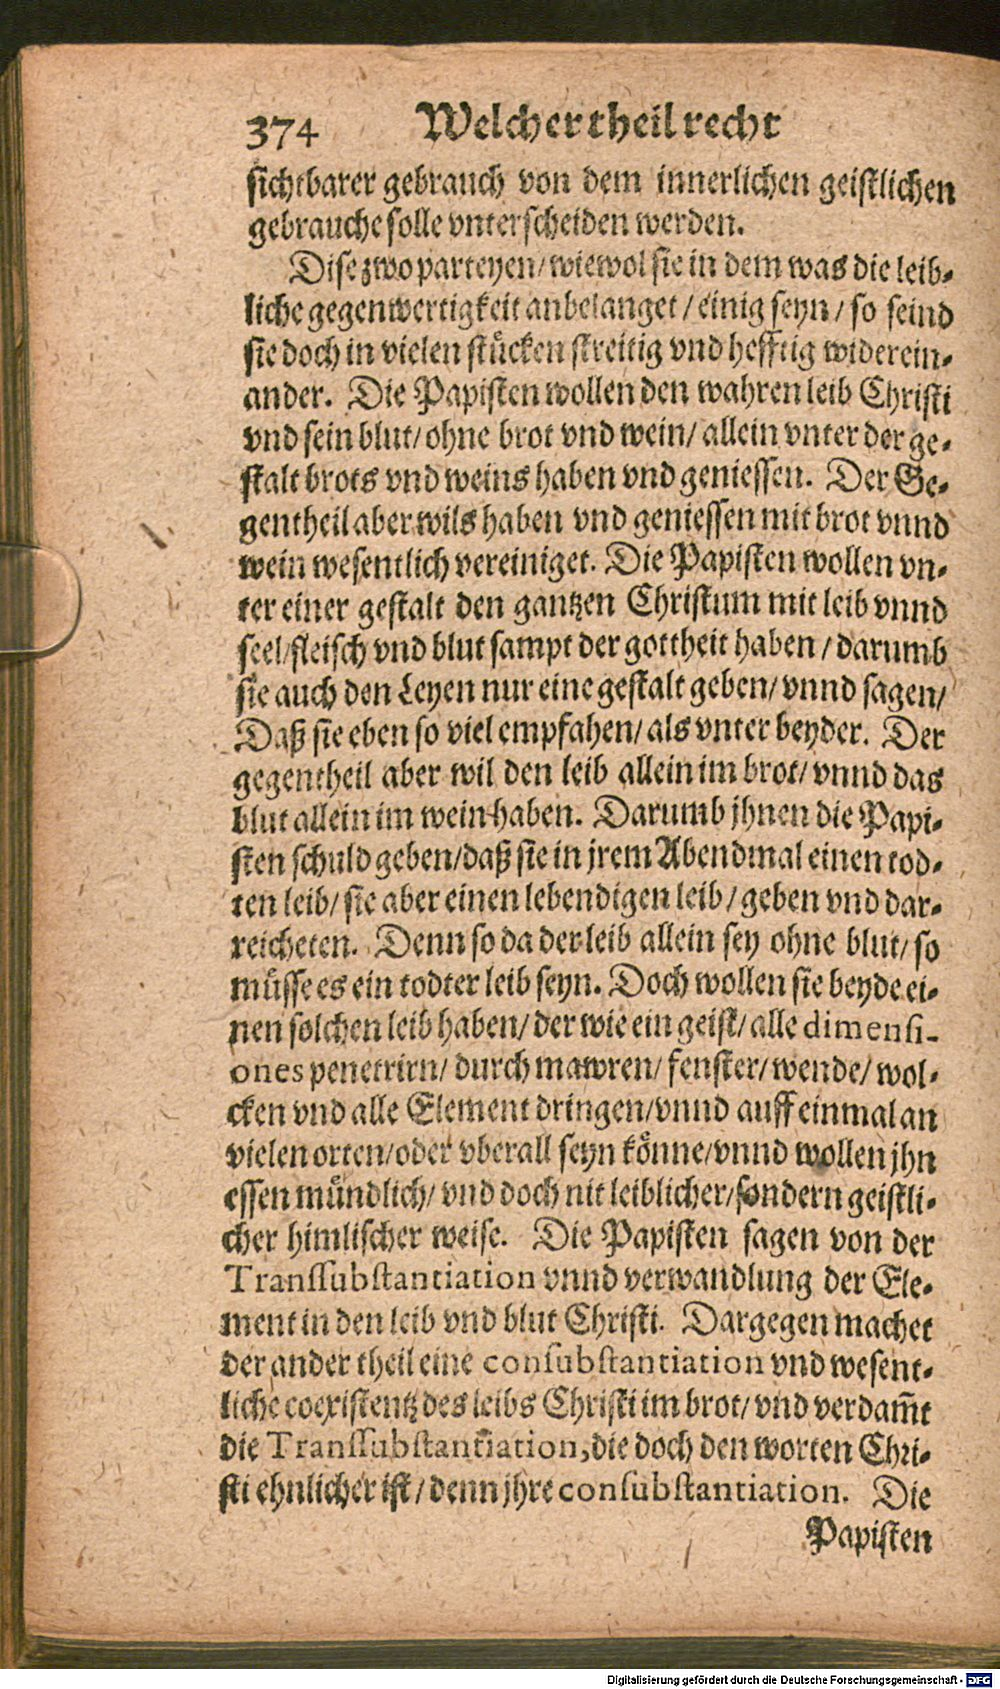 374 Welcher theil recht
sichtbarer gebrauch von dem innerlichen geistlichen
gebrauche solle vnterscheiden werden.
Dise zwo parteyen/ wiewol sie in dem was die leib-
liche gegenwertigkeit anbelanget / einig seyn / so seind
sie doch in vielen stücken streitig vnd hefftig widerein-
ander. Die Papisten wollen den wahren leib Christi
vnd sein blut/ ohne brot vnd wein/ allein vnter der ge-
stalt brots vnd weins haben vnd geniessen. Der Ge-
gentheil aber wils haben vnd geniessen mit brot vnnd
wein wesentlich vereiniget. Die Papisten wollen vn-
ter einer gestalt den gantzen Christum mit leib vnnd
seel/fleisch vnd blut sampt der gottheit haben / darumb
sie auch den Leyen nur eine gestalt geben/ vnnd sagen/
Daß sie eben so viel empfahen/ als vnter beyder. Der
gegentheil aber wil den leib allein im brot/ vnnd das
blut allein im wein haben. Darumb jhnen die Papi-
sten schuld geben/daß sie in jrem Abendmal einen tod-
ten leib/ sie aber einen lebendigen leib / geben vnd dar-
reicheten. Denn so da der leib allein sey ohne blut/ so
müsse es ein todter leib seyn. Doch wollen sie beyde ei-
nen solchen leib haben/ der wie ein geist/ alle dimensi-
ones penetrirn/ durch mawren/ fenster/ wende/ wol-
cken vnd alle Element dringen/vnnd auff einmal an
vielen orten/oder vberall seyn könne/vnnd wollen jhn
essen mündlich/ vnd doch nit leiblicher/sondern geistli-
cher himlischer weise. Die Papisten sagen von der
Transsubstantiation vnnd verwandlung der Ele-
ment in den leib vnd blut Christi. Dargegen machet
der ander theil eine consubstantiation vnd wesent-
liche coexistentz des leibs Christi im brot/ vnd verdam̅t
die Transsubstantiation, die doch den worten Chri-
sti ehnlicher ist / denn jhre consubstantiation. Die
Papisten
Digitalisierung gefördert durch die Deutsche Forschungsgemeinschaft - DFG